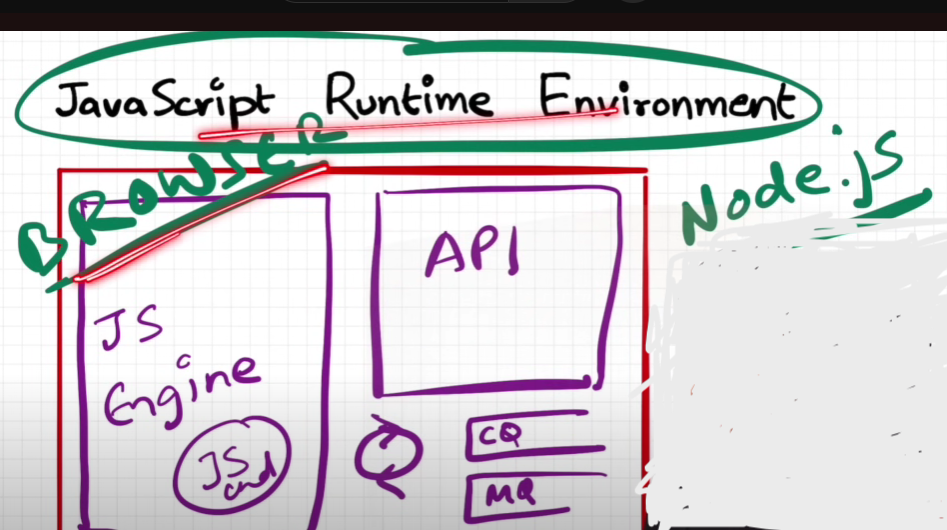 JavaScript Runtime Environment
BROWSER
Node.js
API
JS
Engine
JS
cmd
CQ
MQ